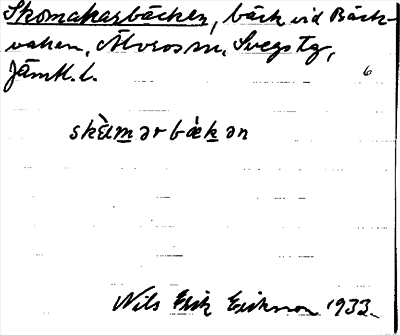 Skomakarbäcken, bäck vid Bäck-
vallen, Älvros sn, Svegs tg,
Jämtl. l.
6
skɷ̀mərbækən
Nils Erik Eriksson 1933